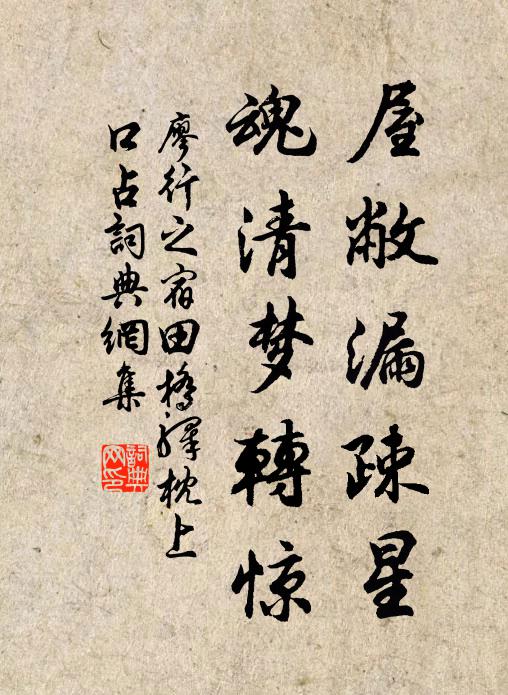 屋敝漏疎星
魂清梦轉惊
廖行之宿田橋驛枕上
口占詞典網集
詞典网印